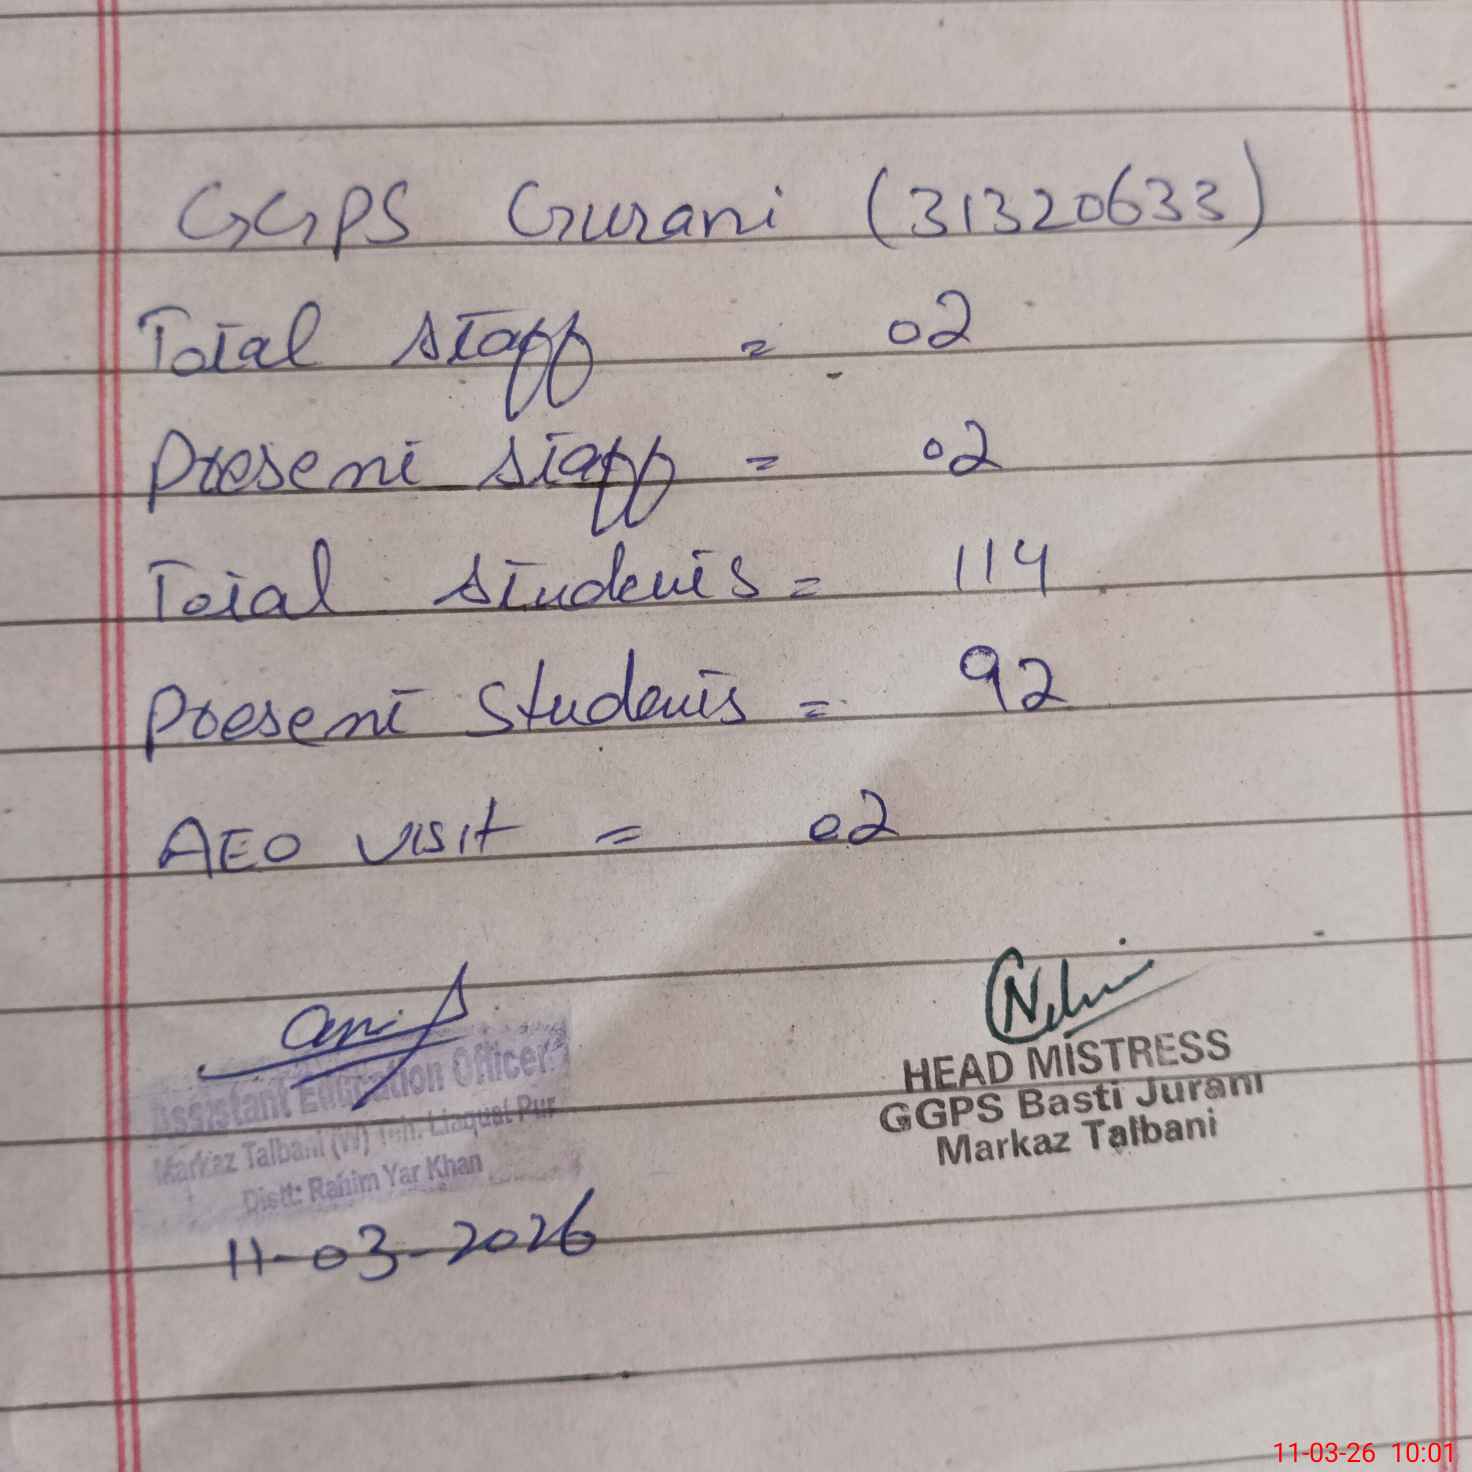 GGPS Gurani (31320633)
Total staff = 02
Present staff = 02
Total students = 114
Present students = 92
AEO visit = 02
Assistant Education Officer
Markaz Talbani (W) Teh. Liaquat Pur
Distt: Rahim Yar Khan
11-03-2026
HEAD MISTRESS
GGPS Basti Jurani
Markaz Talbani
11-03-26 10:01